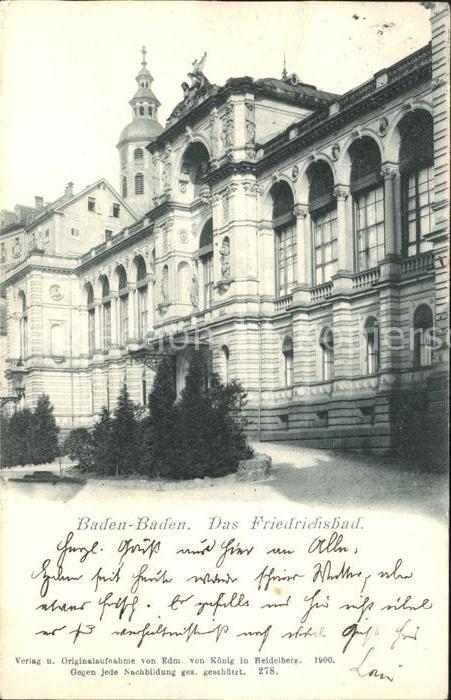 Baden-Baden. Das Friedrichsbad.
Herzl. Gruß aus hier an Alle,
seit heute wieder schönes Wetter, aber
etwas frisch. Es gefällt uns hier nicht übel
es ist verhältnißmäß noch viel hier
Verlag u. Originalaufnahme von Edm. von König in Heidelberg. 1900.
Gegen jede Nachbildung ges. geschützt. 278.